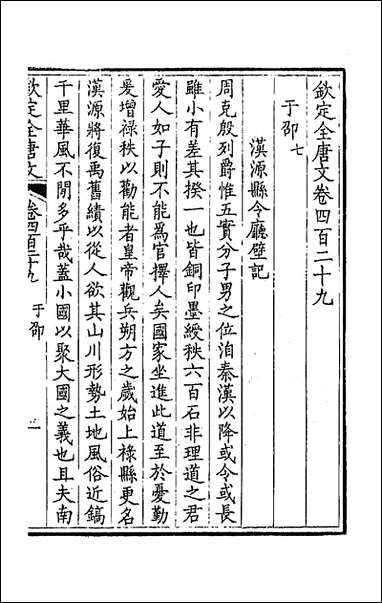 欽定全唐文卷四百二十九
于邵七
漢源縣令廳壁記
周克殷列爵惟五實分子男之位洎秦漢以降或令或長
雖小有差其揆一也皆銅印墨綬秩六百石非理道之君
愛人如子則不能為官擇人矣國家坐進此道至於憂勤
爰增祿秩以勸能者皇帝觀兵朔方之歲始上祿縣更名
漢源將復禹舊績以從人欲其山川形勢土地風俗近鎬
千里華風不閒多乎哉蓋小國以聚大國之義也且夫南
欽定全唐文
卷四百二十九
于邵
一